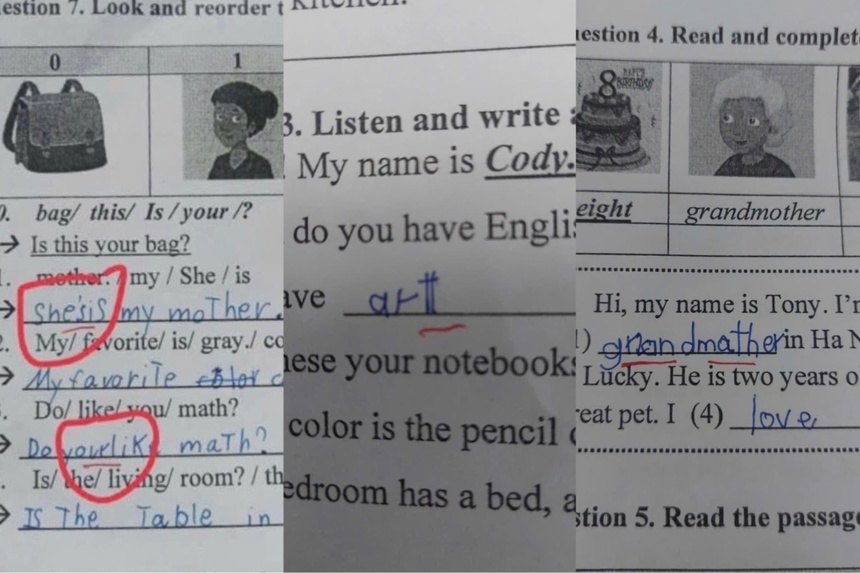 estion 7. Look and reorder t
0 1
0. bag/ this/ Is / your /?
→ Is this your bag?
1. mother. / my / She / is
→ She'sis my moTher.
2. My/ favorite/ is/ gray./ co
→ My favorite color c
Do/ like/ you/ math?
Do yourlik maTh?
Is/ the/ living/ room? / th
→ IS The Table in
kitchen.
3. Listen and write a
My name is Cody.
do you have Englis
ave artt
hese your notebooks
color is the pencil c
edroom has a bed, a
estion 4. Read and complete
8 HAPPY BIRTHDAY
eight grandmother
Hi, my name is Tony. I'm
1) grandmather in Ha N
Lucky. He is two years o
reat pet. I (4) love
stion 5. Read the passage